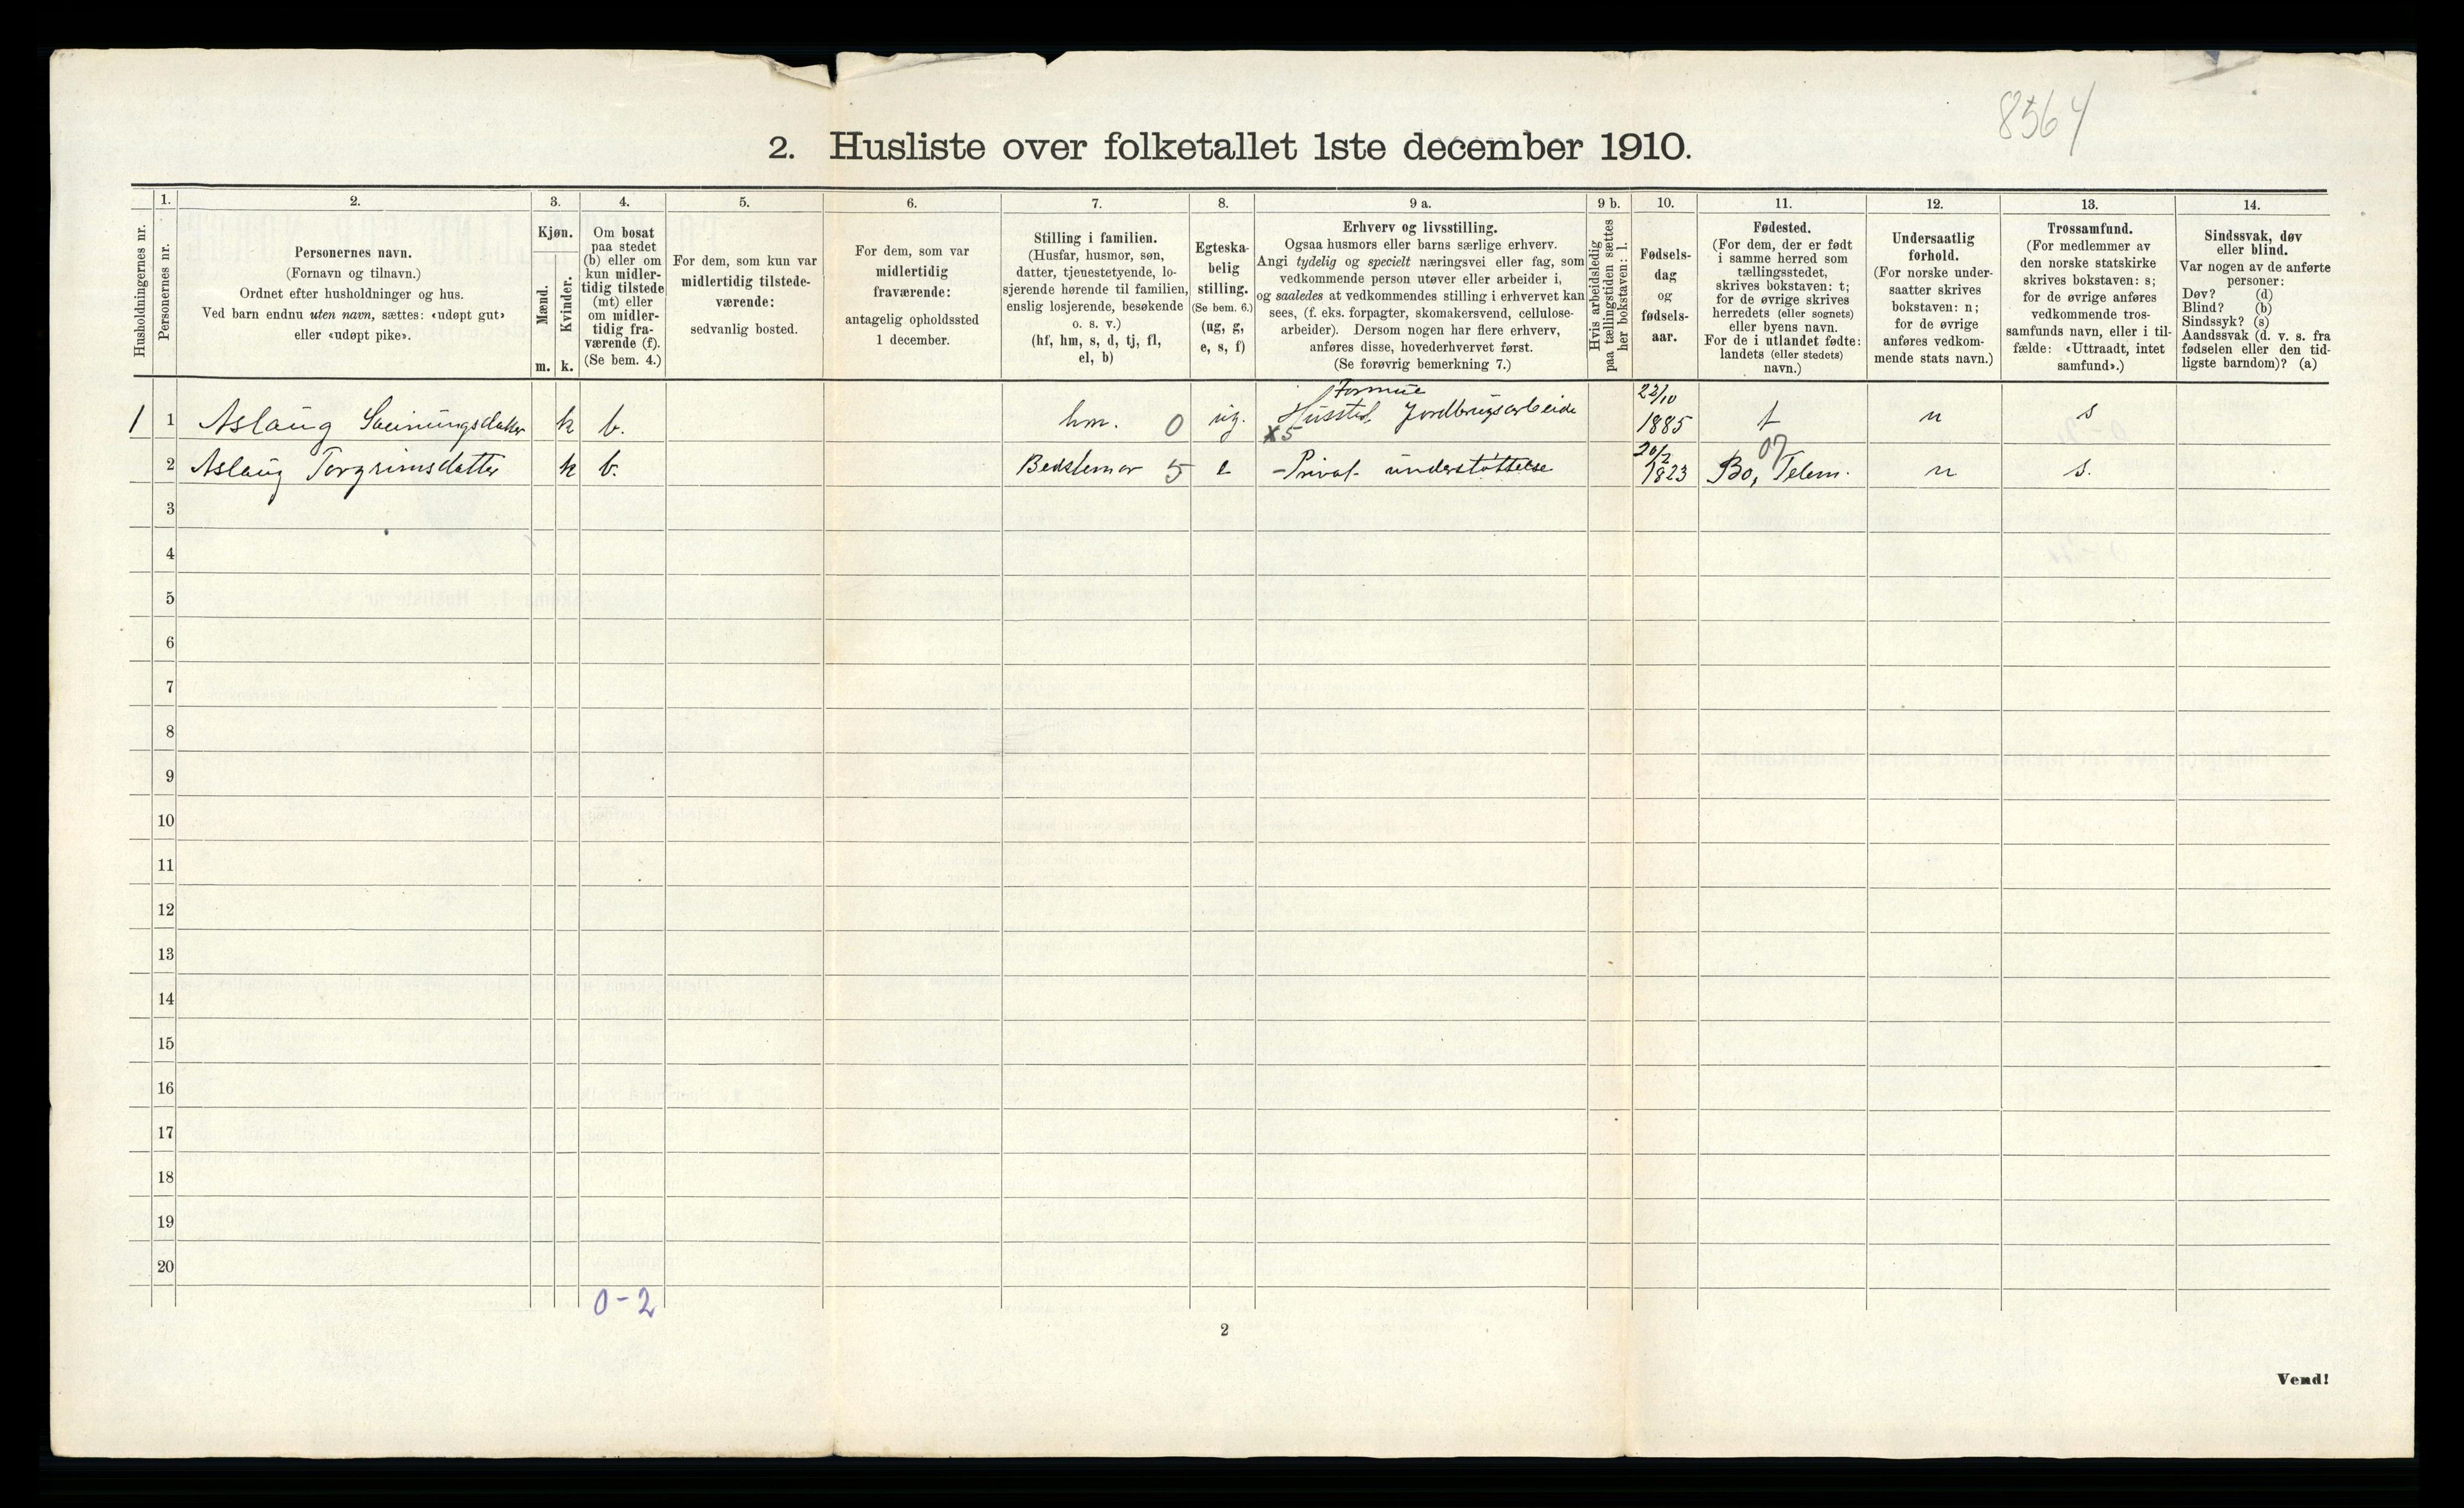 8564
2. Husliste over folketallet 1ste december 1910.
Husholdningernes nr.
1.
Personernes nr.
2.
Personernes navn.
(Fornavn og tilnavn.)
Ordnet efter husholdninger og hus.
Ved barn endnu uten navn, sættes: «udøpt gut»
eller «udøpt pike».
3.
Kjøn.
Mænd.
Kvinder.
m.
k.
4.
Om bosat
paa stedet
(b) eller om
kun midler-
tidig tilstede
(mt) eller
om midler-
tidig fra-
værende (f).
(Se bem. 4.)
5.
For dem, som kun var
midlertidig tilstede-
værende:
sedvanlig bosted.
6.
For dem, som var
midlertidig
fraværende:
antagelig opholdssted
1 december.
7.
Stilling i familien.
(Husfar, husmor, søn,
datter, tjenestetyende, lo-
sjerende hørende til familien,
enslig losjerende, besøkende
o. s. v.)
(hf, hm, s, d, tj, fl,
el, b)
8.
Egteska-
belig
stilling.
(Se bem. 6.)
(ug, g,
e, s, f)
9 a.
Erhverv og livsstilling.
Ogsaa husmors eller barns særlige erhverv.
Angi tydelig og specielt næringsvei eller fag, som
vedkommende person utøver eller arbeider i,
og saaledes at vedkommendes stilling i erhvervet kan
sees, (f. eks. forpagter, skomakersvend, cellulose-
arbeider). Dersom nogen har flere erhverv,
anføres disse, hovederhvervet først.
(Se forøvrig bemerkning 7.)
9 b.
Hvis arbeidsledig
paa tællingstiden sættes
her bokstaven: l.
10.
Fødsels-
dag
og
fødsels-
aar.
11.
Fødested.
(For dem, der er født
i samme herred som
tællingsstedet,
skrives bokstaven: t;
for de øvrige skrives
herredets (eller sognets)
eller byens navn.
For de i utlandet fødte:
landets (eller stedets)
navn.)
12.
Undersaatlig
forhold.
(For norske under-
saatter skrives
bokstaven: n;
for de øvrige
anføres vedkom-
mende stats navn.)
13.
Trossamfund.
(For medlemmer av
den norske statskirke
skrives bokstaven: s;
for de øvrige anføres
vedkommende tros-
samfunds navn, eller i til-
fælde: «Uttraadt, intet
samfund».)
14.
Sindssvak, døv
eller blind.
Var nogen av de anførte
personer:
Døv? (d)
Blind? (b)
Sindssyk? (s)
Aandssvak (d. v. s. fra
fødselen eller den tid-
ligste barndom)? (a)
Formue
22/10
1 1 Aslaug Sveinungsdatter k b. hm. 0 ug. x5 Husstel, Jordbrugsarbeide 1885 t n s
20/2 07
2 Aslaug Torgrimsdatter k b. Bedstemor 5 e - Privat understøttelse 1823 Bo, Telem. n s.
3
4
5
6
7
8
9
10
11
12
13
14
15
16
17
18
19
20
0-2
2
Vend!